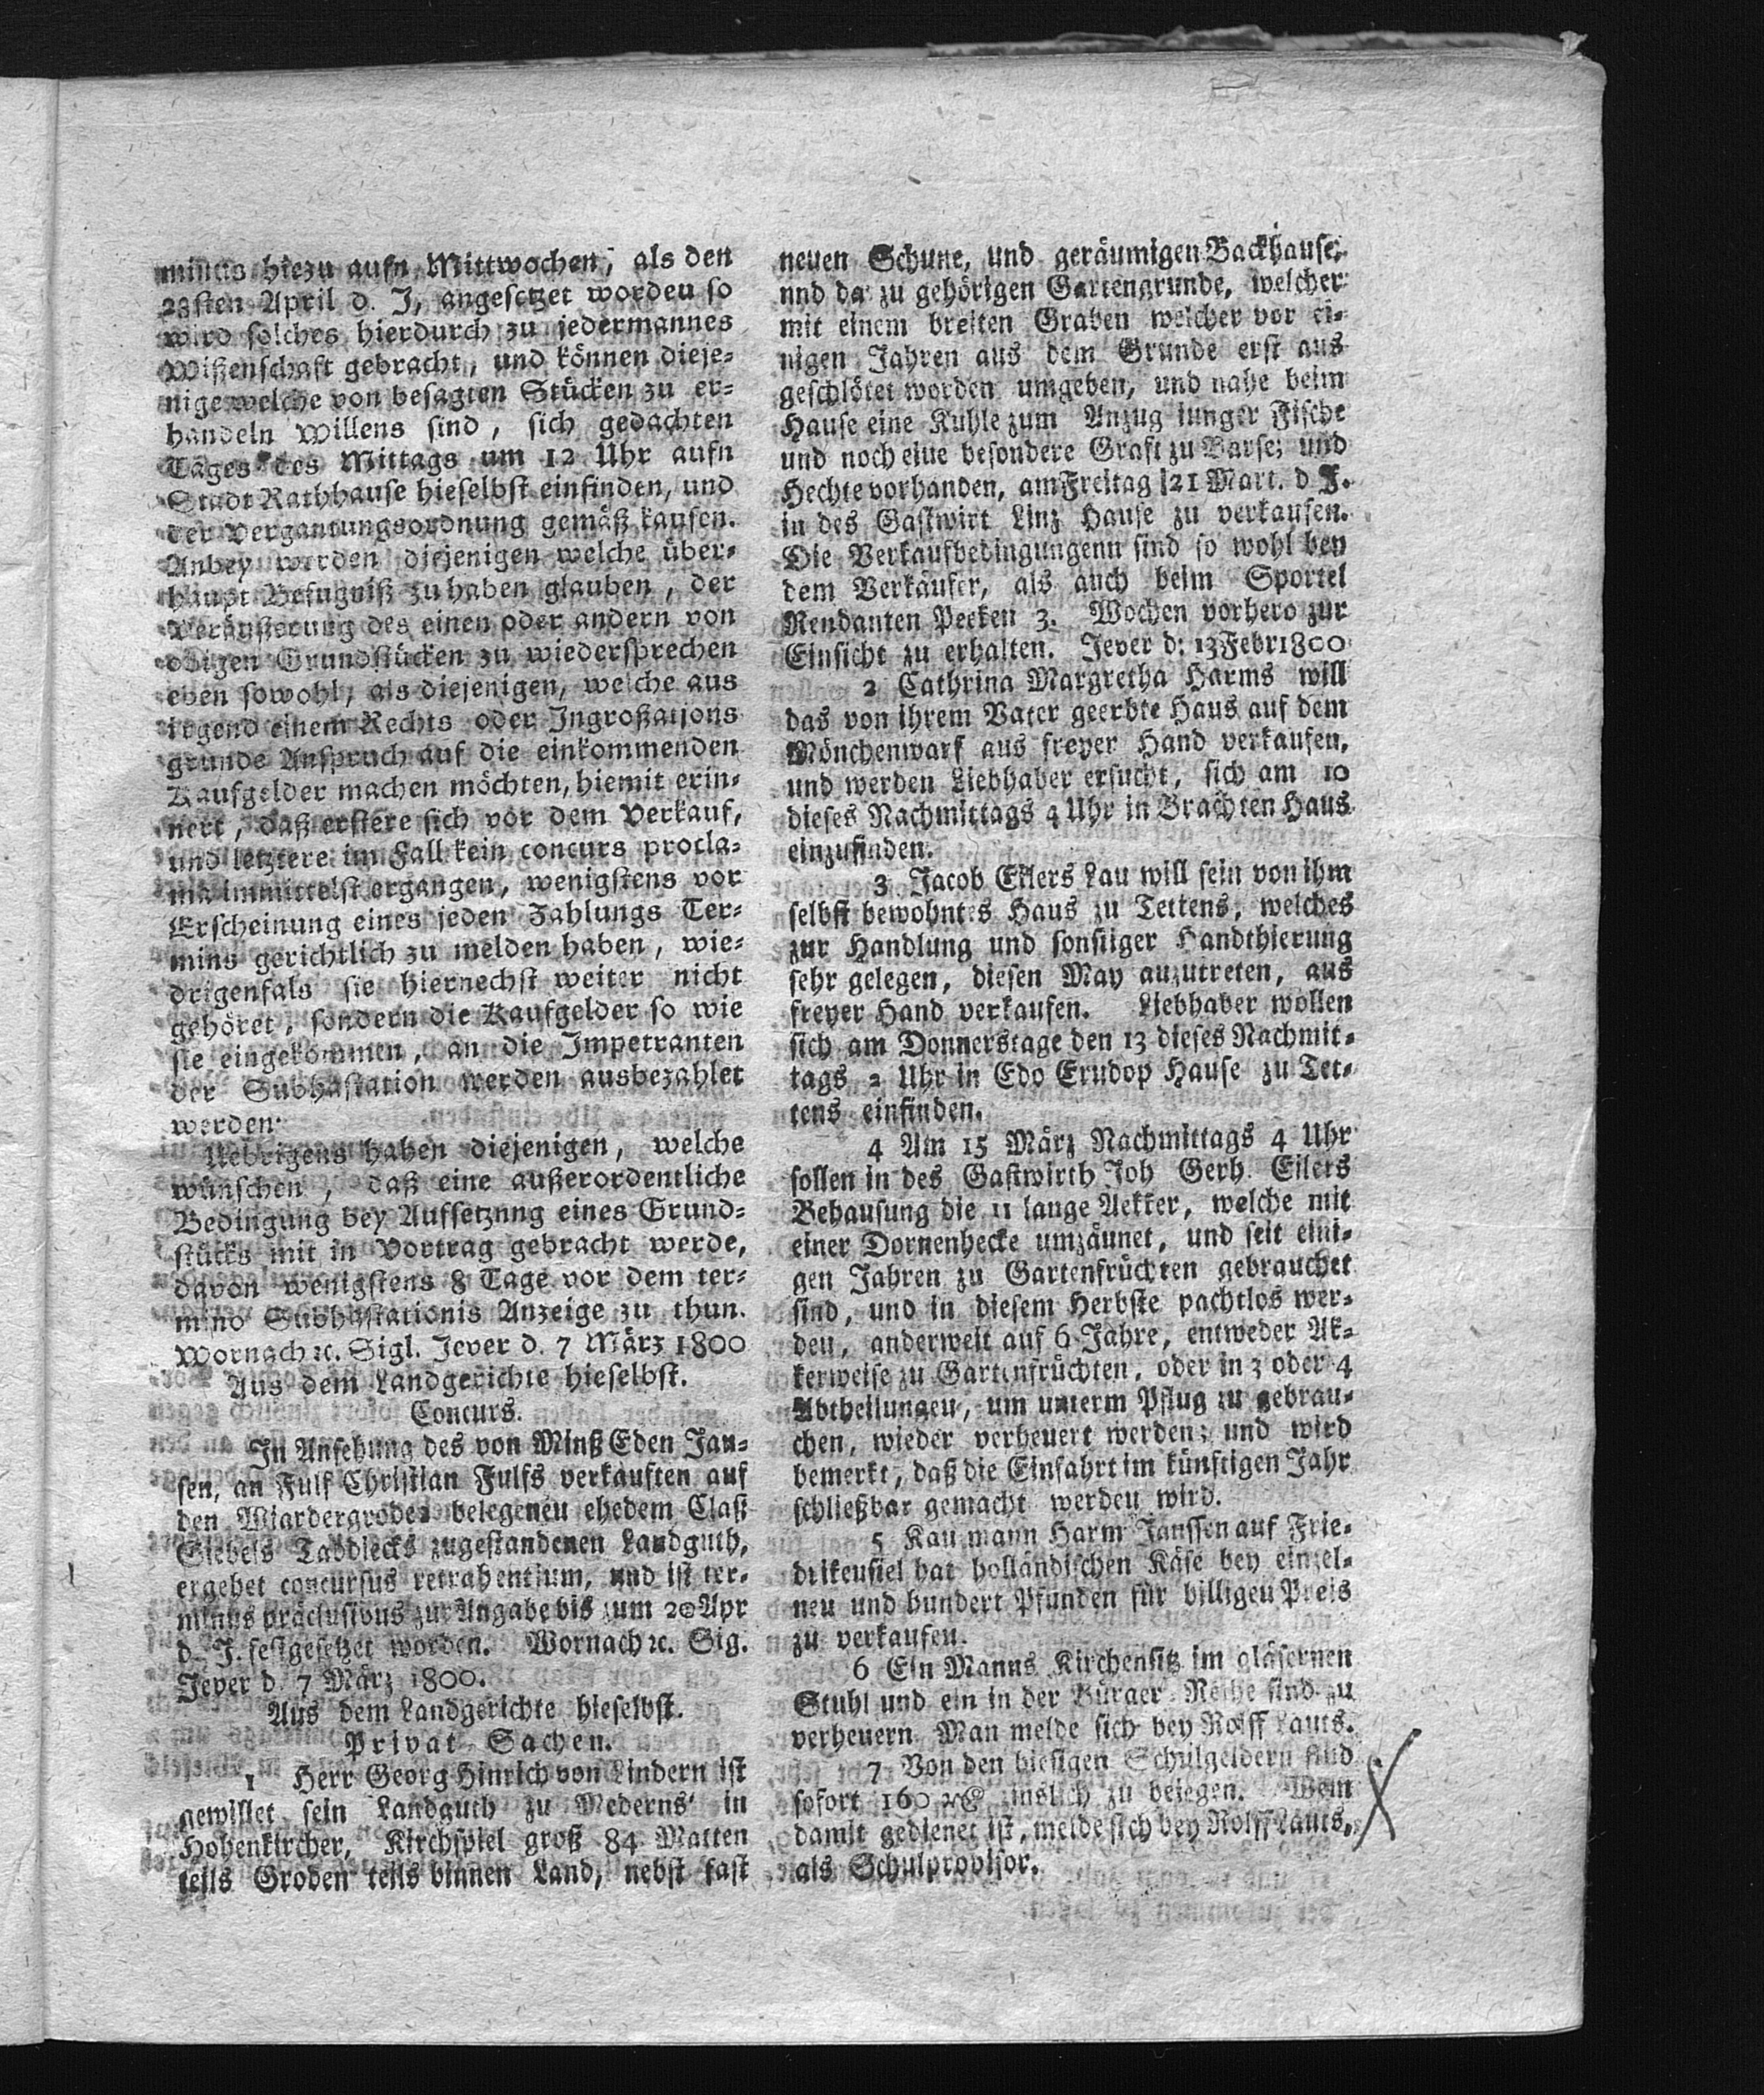 minus hiezu aufn Mittwochen, als den
23sten April d. J, angesetzet wordeu so
wird solches hierdurch zu jedermannes
Wißenschaft gebracht, und können dieje-
nige welche von besagten Stücken zu er-
handeln willens sind, sich gedachten
Tages des Mittags um 12 Uhr aufn
Stadt Rathhause hieselbst einfinden, und
der Vergantungsordnung gemäß kaufen.
Anbey werden diejenigen welche über-
haupt Befugniß zu haben glauben, der
Veräußerung des einen oder andern von
obigen Grundstücken zu wiedersprechen
eben sowohl, als diejenigen, welche aus
irgend einem Rechts oder Ingroßations
grunde Anspruch auf die einkommenden
Kaufgelder machen möchten, hiemit erin-
nert, daß erstere sich vor dem Verkauf,
und letztere im Fall kein concurs procla-
ma immittelst ergangen, wenigstens vor
Erscheinung eines jeden Zahlungs Ter-
mins gerichtlich zu melden haben, wie-
drigenfals sie hiernechst weiter nicht
gehöret, sondern die Kaufgelder so wie
sie eingekommen, an die Impetranten
der Subhastation werden ausbezahlet
werden.
Uebrigens haben diejenigen, welche
wünschen, daß eine außerordentliche
Bedingung bey Aufsetznng eines Grund-
stücks mit in Vortrag gebracht werde,
davon wenigstens 8 Tage vor dem ter-
mino Subhastationis Anzeige zu thun.
Wornach ꝛc. Sigl. Jever d. 7 März 1800
Aus dem Landgerichte hieselbst.
Concurs.
In Ansehung des von Minß Eden Jan-
sen, an Fulf Christian Fulfs verkauften auf
den Wiardergroden belegeneu ehedem Claß
Siebels Tabdiecks zugestandenen Landguth,
ergehet concursus retrahentium, und ist ter-
minus präclusivus zur Angabe bis zum 20 Apr
d. J. festgesetzet worden. Wornach ꝛc. Sig.
Jever d. 7 März 1800.
Aus dem Landgerichte hieselbst.
Privat Sachen.
1 Herr Georg Hinrich von Lindern ist
gewillet sein Landguth zu Mederns in
Hohenkircher, Kirchspiel groß 84 Matten
teils Groden teils binnen Land, nebst fast
neuen Schune, und geräumigen Backhause,
nnd da zu gehörigen Gartengrunde, welcher
mit einem breiten Graben welcher vor ei-
nigen Jahren aus dem Grunde erst aus
geschlötet worden umgeben, und nahe beim
Hause eine Kuhle zum Anzug iunger Fische
und noch eiue besondere Graft zu Barse; und
Hechte vorhanden, am Freitag 21 Mart. d J.
in des Gastwirt Linz Hause zu verkaufen.
Die Verkaufbedingungenn sind so wohl bey
dem Verkäufer, als auch beim Sportel
Rendanten Peeken 3. Wochen vorhero zur
Einsicht zu erhalten. Jever d: 13Febr1800
2 Cathrina Margretha Harms will
das von ihrem Vater geerbte Haus auf dem
Mönchenwarf aus freyer Hand verkaufen,
und werden Liebhaber ersucht, sich am 10
dieses Nachmittags 4 Uhr in Brachten Haus
einzufinden.
3 Jacob Eilers Lau will sein von ihm
selbst bewohntes Haus zu Tettens, welches
zur Handlung und sonstiger Handthierung
sehr gelegen, diesen May auzutreten, aus
freyer Hand verkaufen. Liebhaber wollen
sich am Donnerstage den 13 dieses Nachmit-
tags 2 Uhr in Edo Erudop Hause zu Tet-
tens einfinden.
4 Am 15 März Nachmittags 4 Uhr
sollen in des Gastwirth Joh Gerh. Eilers
Behausung die 11 lange Aekker, welche mit
einer Dornenhecke umzäunet, und seit eini-
gen Jahren zu Gartenfrüchten gebrauchet
sind, und in diesem Herbste pachtlos wer-
den, anderweit auf 6 Jahre, entweder Ak-
kerweise zu Gartenfrüchten, oder in 3 oder 4
Abtheilungeu, um unterm Pflug zu gebrau-
chen, wieder verheuert werden; und wird
bemerkt, daß die Einfahrt im künftigen Jahr
schließbar gemacht werdeu wird.
5 Kaufmann Harm Janssen auf Frie-
drikeusiel hat holländischen Käse bey einzel-
neu und hundert Pfunden für billigeu Preis
zu verkaufen.
6 Ein Manns Kirchensitz im gläsernen
Stuhl und ein in der Bürger Reihe sind zu
verheuern. Man melde sich bey Rolff Lauts.
7 Von den hiesigen Schulgeldern sind
sofort 160 rℓ zinslich zu belegen. Wem
damit gedienet ist, melde sich bey Rolff Lauts,
als Schulprovisor.